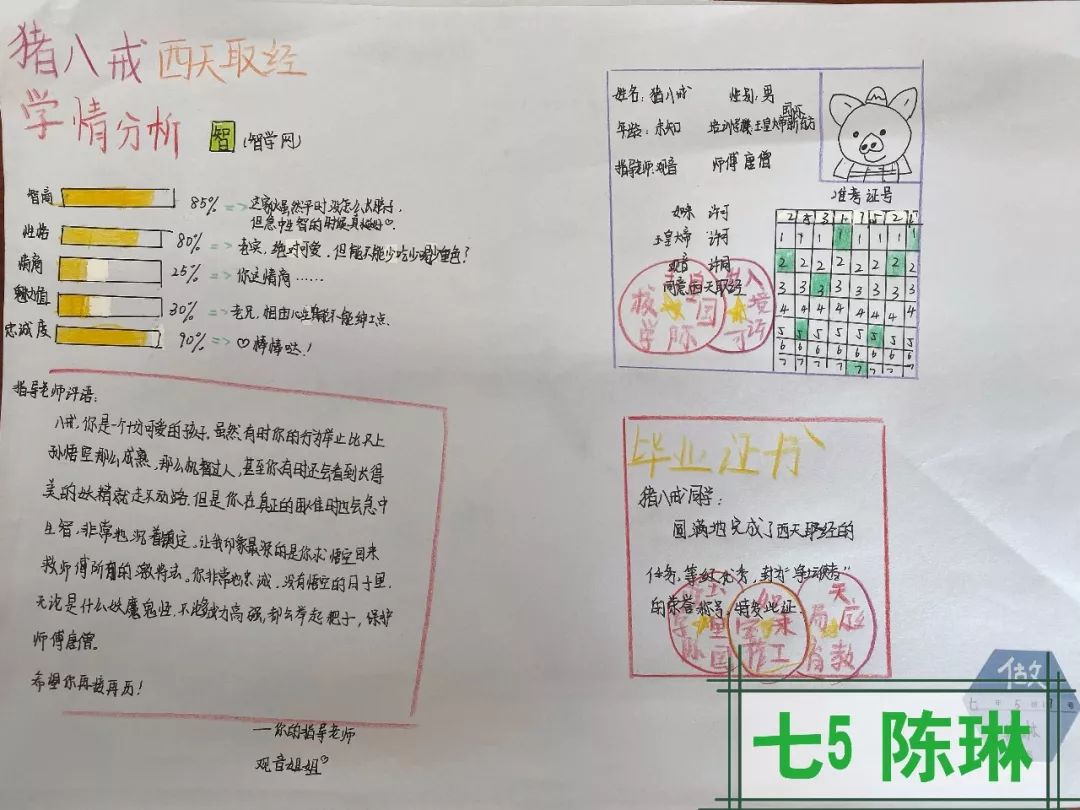 猪八戒西天取经
学情分析 智 (智学网)
智商 85% => 这家伙虽然平时没怎么长脑子,
但急中生智的时候真挺好♡.
性格 80% => 老实,绝对可爱,但能不能少吃少喝少重色?
情商 25% => 你这情商……
魅力值 30% => 老兄,相由心生真能不能绅士点.
忠诚度 90% => ♡棒棒哒!
指导老师评语:
八戒,你是一个十分可爱的孩子.虽然有时你的行为举止比不上
孙悟空那么成熟,那么机智过人,甚至你有时还会看到长得
美的妖精就走不动路.但是你在真正的困难时也会急中
生智,非常地沉着镇定.让我印象最深的是你求悟空回来
救师傅所有的激将法。你非常地忠诚,没有悟空的日子里.
无论是什么妖魔鬼怪.不论战力高强,都会举起耙子,保护
师傅唐僧。
希望你再接再厉!
—你的指导老师
观音姐姐♡
姓名:猪八戒 性别:男
年龄:未知 玉皇大帝新东方
国际
指导老师:观音 师傅 唐僧
准考证号
如来 许可
玉皇大帝 许可
观音 许可
同意西天取经
1 1 1 1 1 1 1 1
2 2 2 2 2 2 2 2
3 3 3 3 3 3 3 3
4 4 4 4 4 4 4 4
5 5 5 5 5 5 5 5
6 6 6 6 6 6 6 6
7 7 7 7 7 7 7 7
毕业证书
猪八戒同学:
圆满地完成了西天取经的
任务,等级优秀,封为"净坛使者"
的荣誉称号,特发此证.
做
七5 陈琳